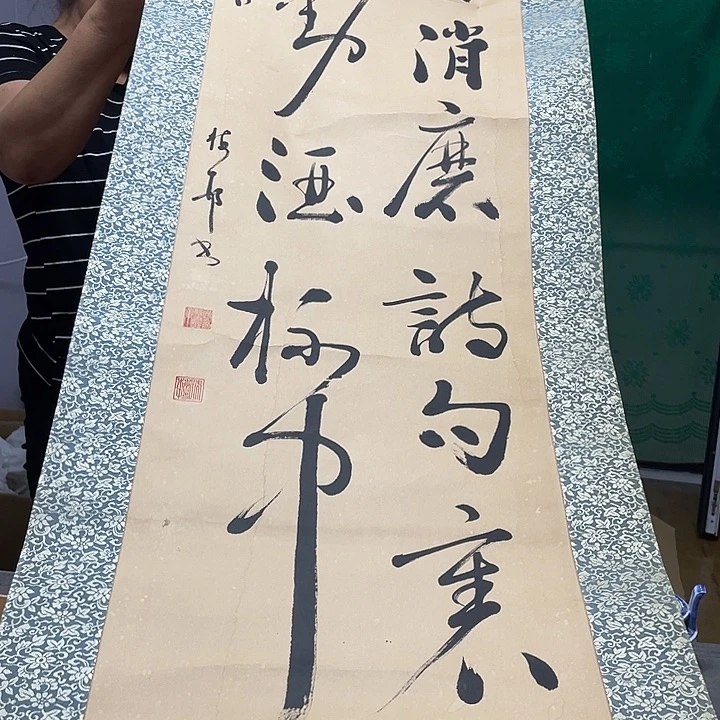 消磨詩句裏
動酒杯中
邨書